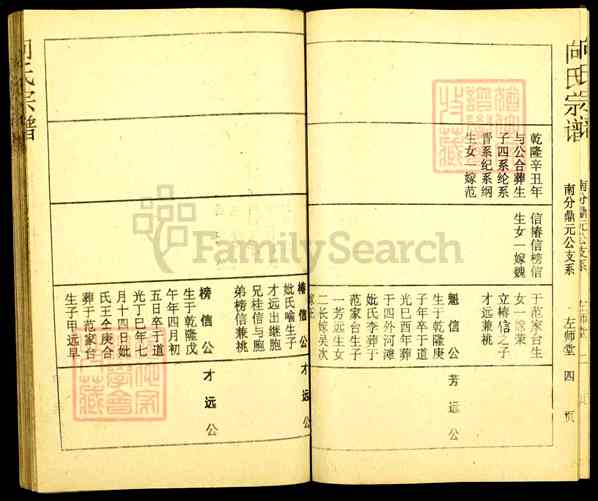 向氏宗谱
南分鼎元公支系
左师堂
四页
乾隆辛丑年
与公合葬生
子四系纶系
晋系纪系纲
生女一嫁范
信椿信榜信
生女一嫁魏
于范家台生
女一嫁荣
立椿信之子
才远兼桃
魁信公
芳远公
生于乾隆庚
子年卒于道
光巳酉年葬
于四外河滩
妣氏李葬于
范家台生子
一芳远生女
二长嫁吴次
嫁王
椿信公
才远公
妣氏喻生子
才远出继胞
兄桂信与胞
弟榜信兼桃
榜信公
才远公
生于乾隆戊
午年四月初
五日卒于道
光丁巳年七
月十四日妣
氏王仝庚合
葬于范家台
生子甲远早
向氏宗谱
FamilySearch